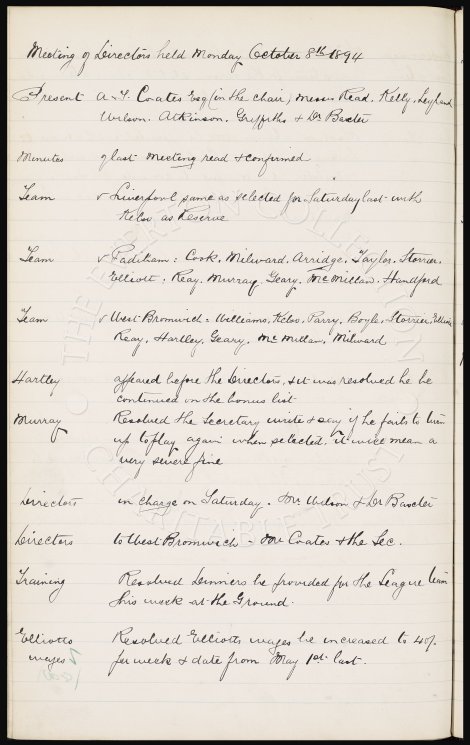 Meeting of Directors held Monday October 8th 1894
Present A. T. Coates Esq (in the chair) Messrs Read, Kelly, Leyland
Wilson, Atkinson, Griffiths & Dr Baxter
Minutes of last meeting read & confirmed
Team v Liverpool same as selected for Saturday last with
Kelso as Reserve
Team v Padiham: Cook, Milward, Arridge, Taylor, Storrier,
Elliott, Reay, Murray, Geary, McMillan, Handford
Team v West Bromwich = Williams, Kelso, Parry, Boyle, Storrier, Elliott
Reay, Hartley, Geary, McMillan, Milward
Hartley appeared before the Directors, & it was resolved he be
continued on the bonus list
Murray Resolved the Secretary write & say if he fails to turn
up to play again when selected, it will mean a
very severe fine
Directors in charge on Saturday. Mr Wilson & Dr Baxter
Directors to West Bromwich - Mr Coates & the Sec.
Training Resolved Dinners be provided for the League team
this week at the Ground.
Elliotts Resolved Elliotts wages be increased to 40/-
wages per week & date from May 1st last.
THE EVERTON COLLECTION
CHARITABLE TRUST